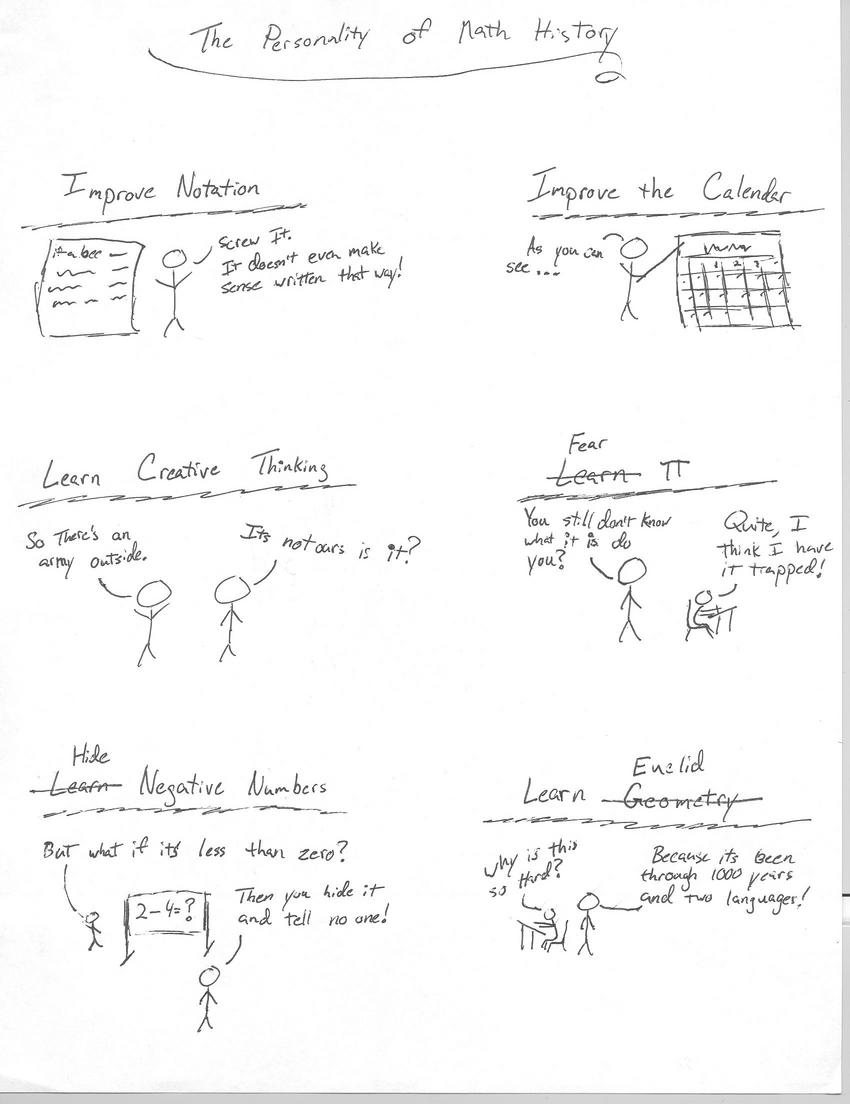 The Personality of Math History
Improve Notation
it a bee
Screw It.
It doesn't even make
sense written that way!
Improve the Calendar
As you can
see...
1 2 3
Learn Creative Thinking
So There's an
army outside.
Its not ours is it?
Fear
Learn π
You still don't know
what it is do
you?
Quite, I
think I have
it trapped!
Hide
Learn Negative Numbers
But what if it's less than zero?
2-4=?
Then you hide it
and tell no one!
Euclid
Learn Geometry
Why is this
so Hard?
Because its been
through 1000 years
and two languages!